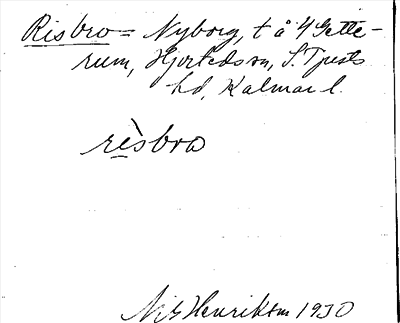 Risbro = Nyborg, t å 4 Gette-
rum, Hjorteds sn, S. Tjusts
hd, Kalmar l.
rèsbro
Nils Henriksm 1930